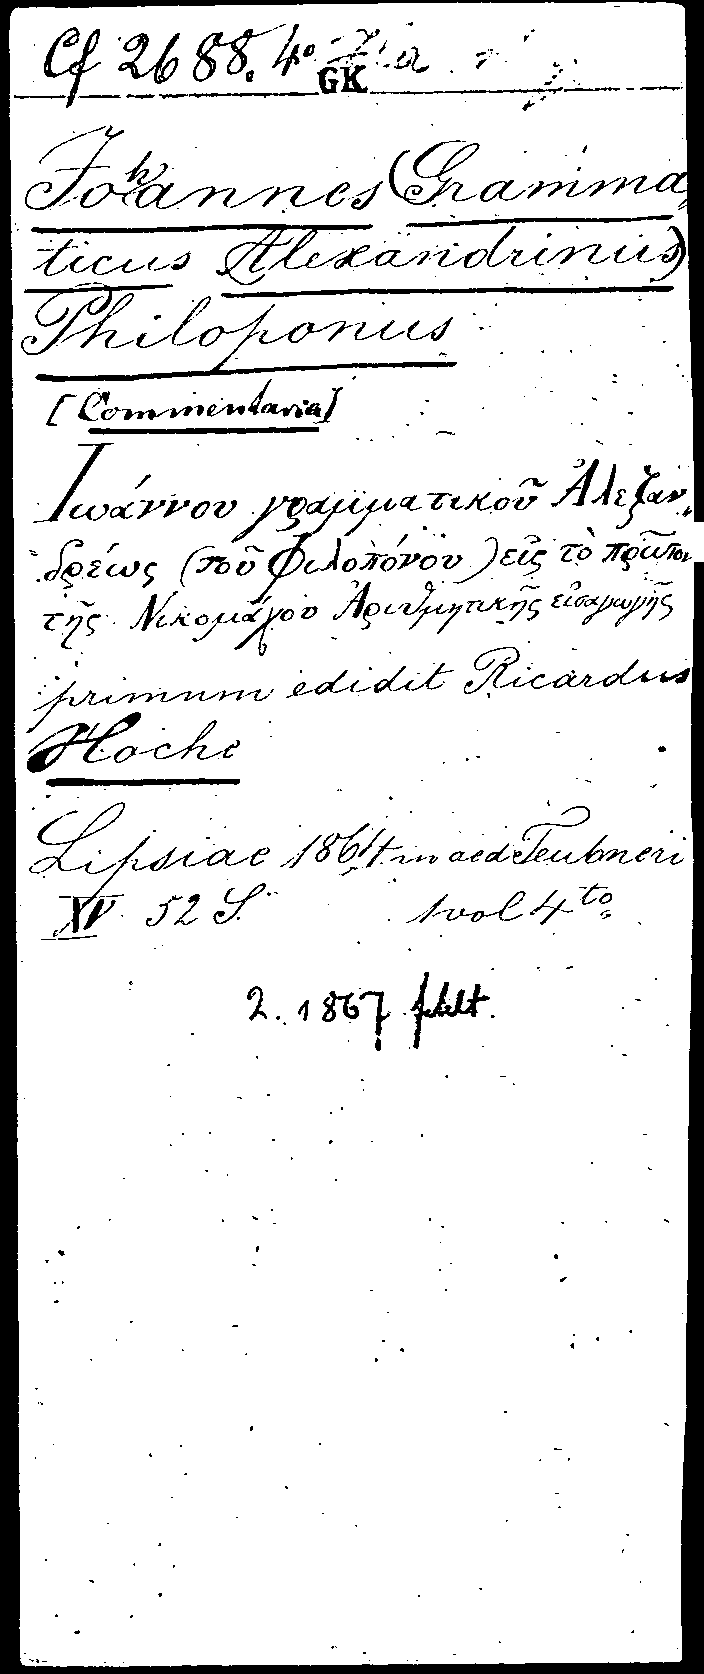 Cf 2688. 4º
GK
Johannes (Gramma-
ticus Alexandrinus)
Philoponus
[Commentaria]
Ἰωάννου γραμματικοῦ Ἀλεξαν-
δρέως (τοῦ Φιλοπόνου) εἰς τὸ πρῶτον
τῆς Νικομάχου Ἀριθμητικῆς εἰσαγωγῆς
primum edidit Ricardus
Hoche
Lipsiae 1864 in aed Teubneri
XV 52 S. 1 vol 4to
2. 1867 fehlt.